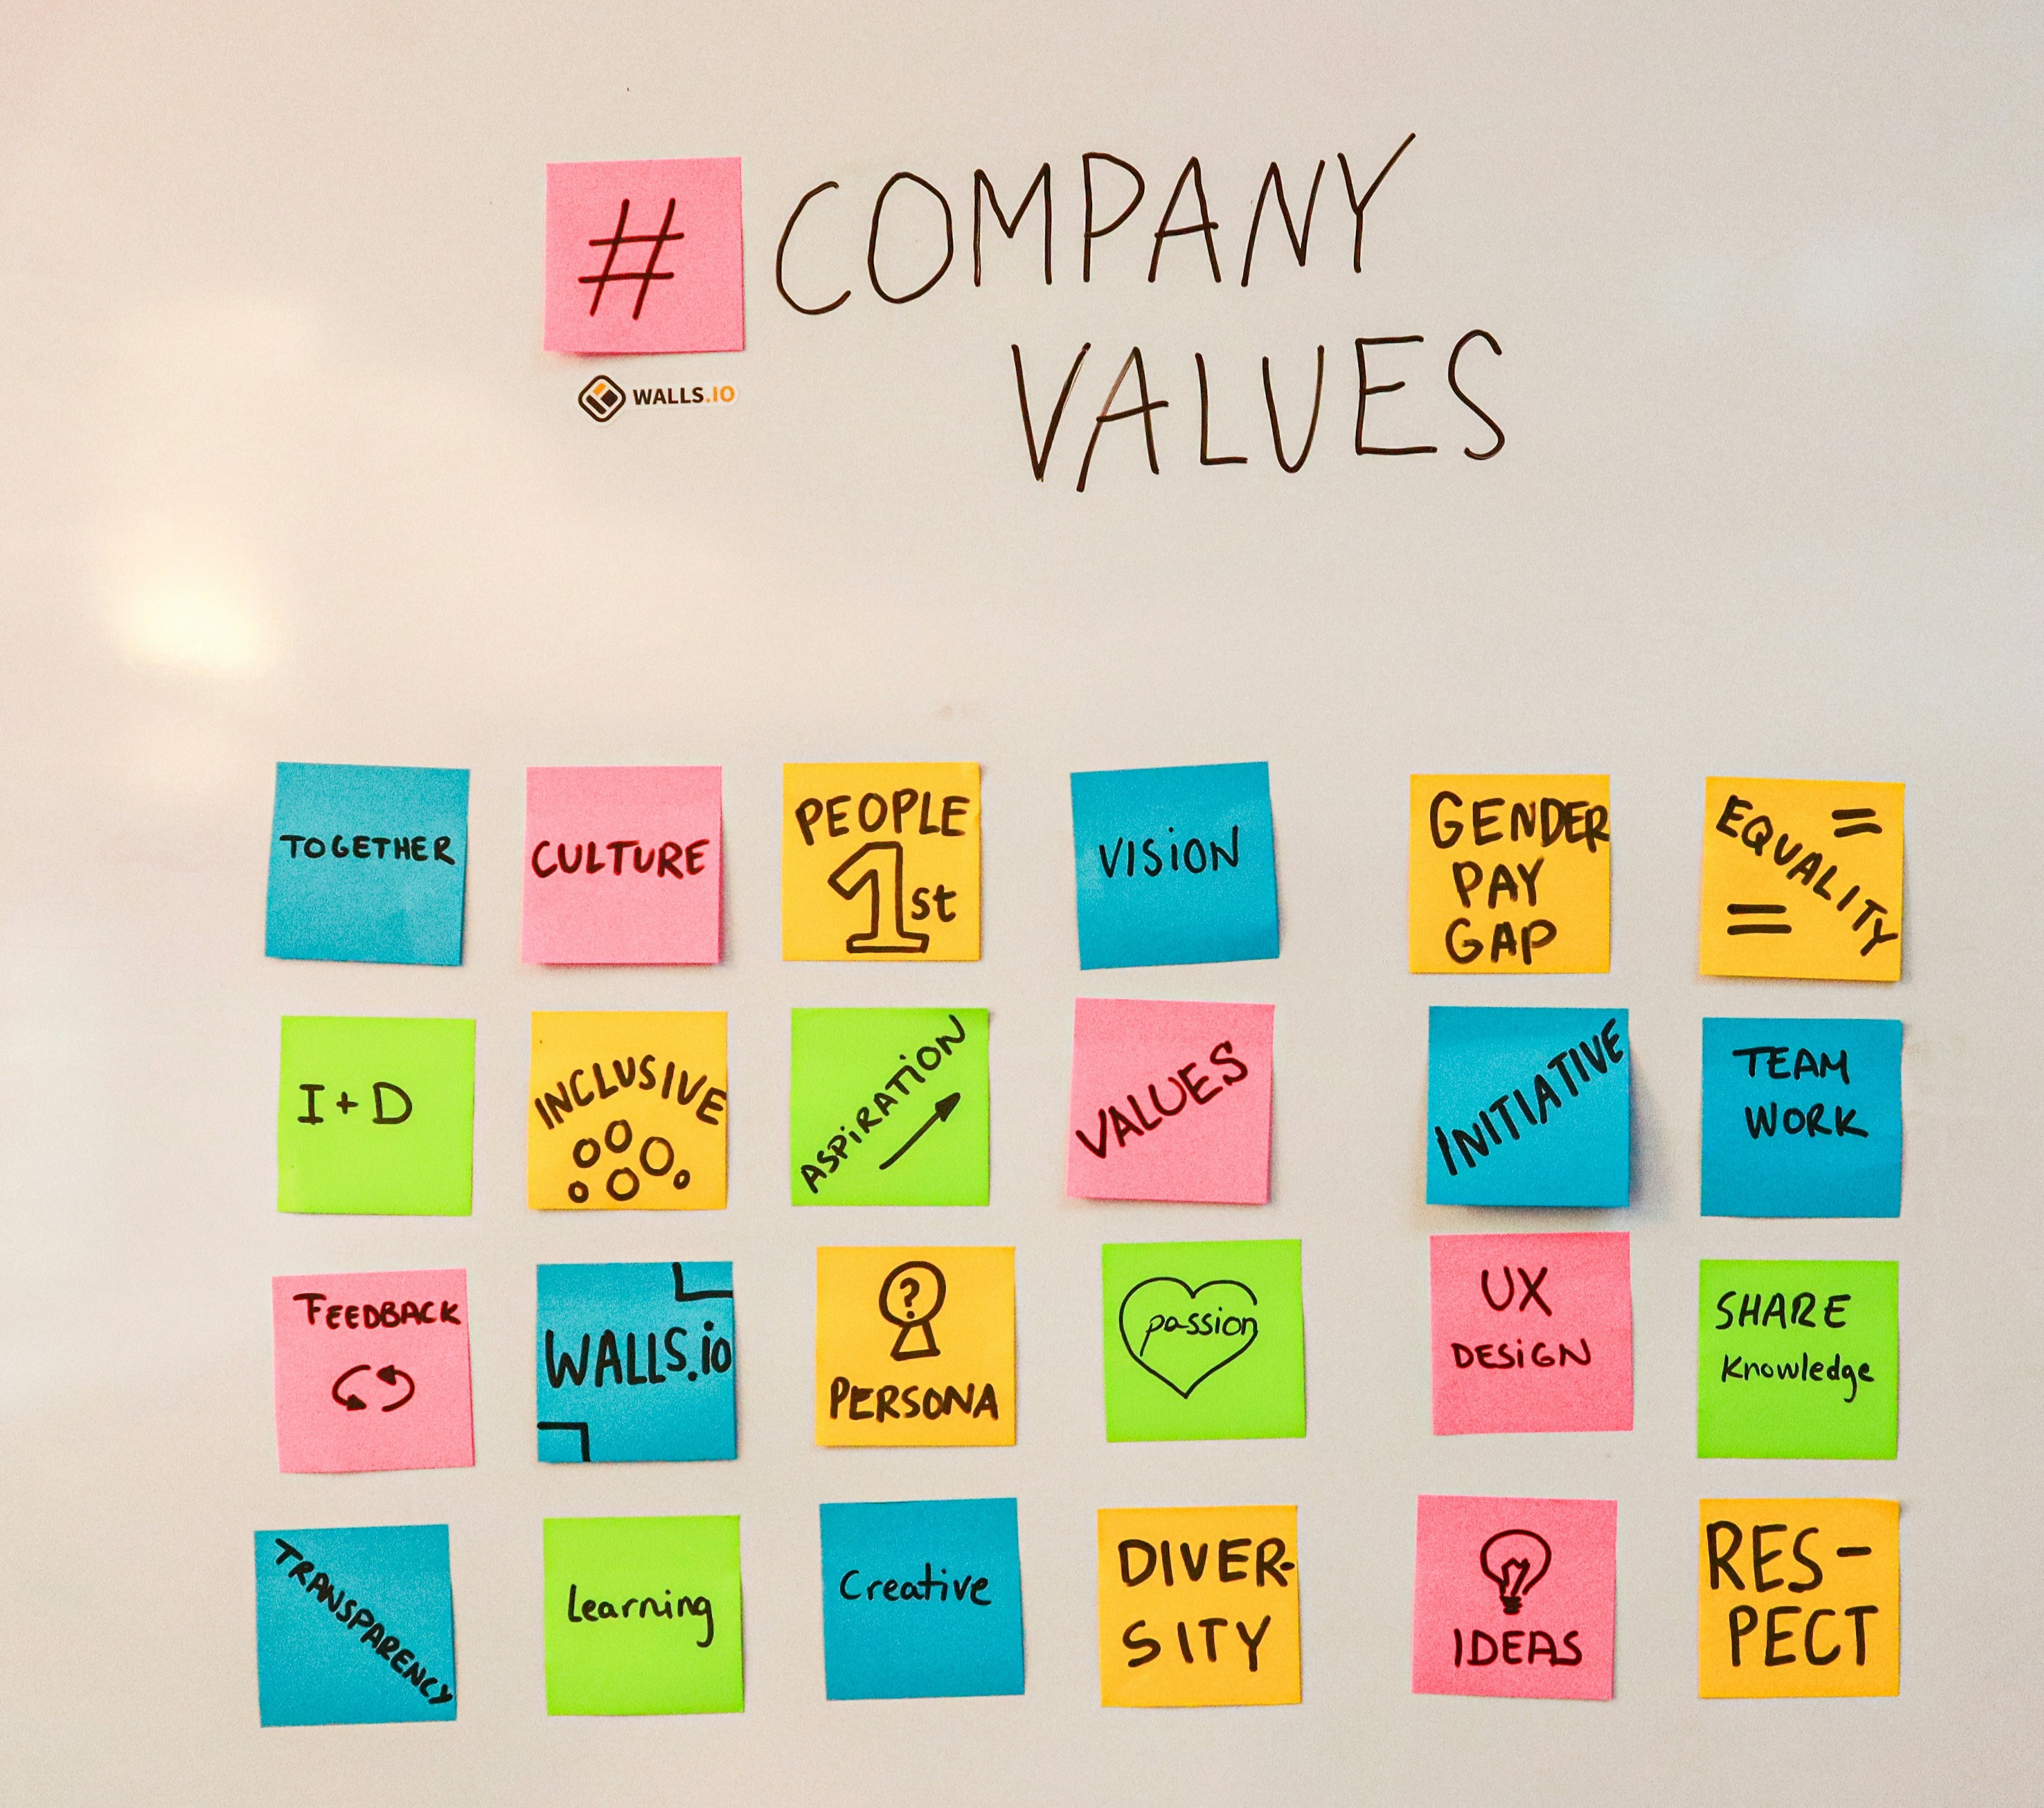 # COMPANY
VALUES
WALLS.IO
TOGETHER
CULTURE
PEOPLE
1st
VISION
GENDER
PAY
GAP
=
EQUALITY
=
I+D
INCLUSIVE
ASPIRATION
VALUES
INITIATIVE
TEAM
WORK
FEEDBACK
WALLS.io
?
PERSONA
passion
UX
DESIGN
SHARE
Knowledge
TRANSPARENCY
Learning
Creative
DIVER-
SITY
IDEAS
RES-
PECT